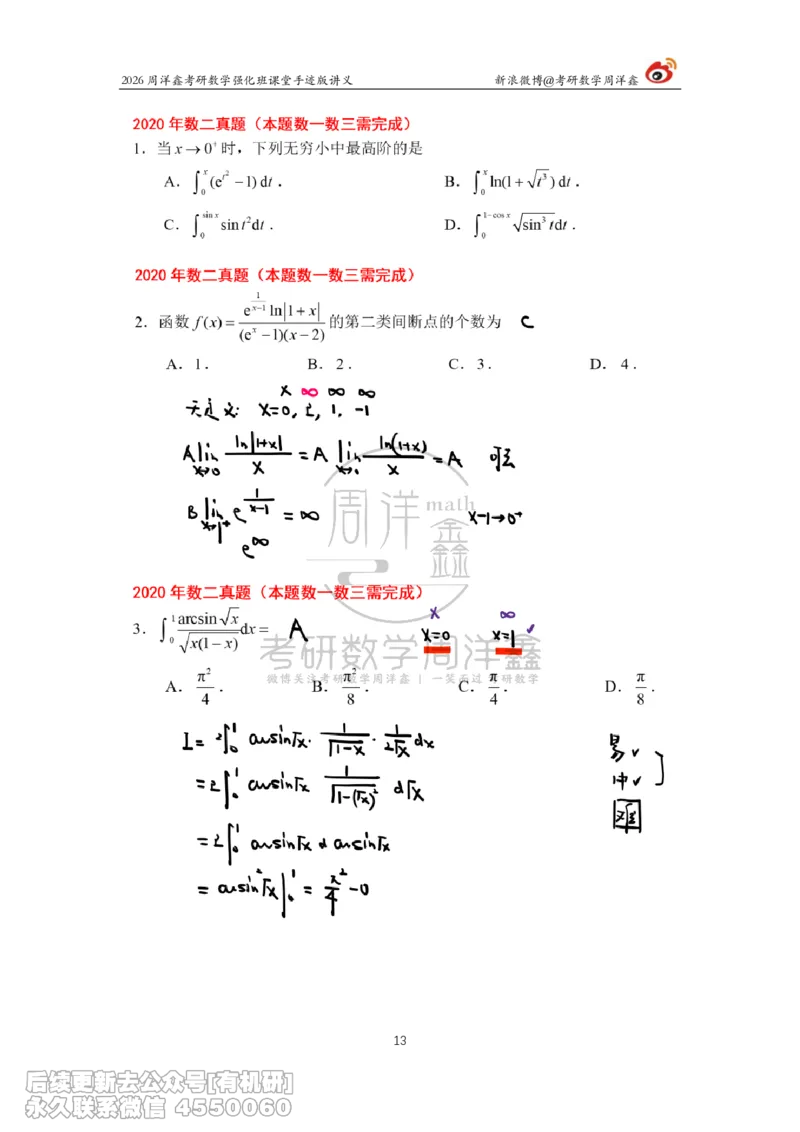 2026 周洋鑫考研数学强化班课堂手迹版讲义 新浪微博@考研数学周洋鑫
2020 年数二真题（本题数一数三需完成）
1．当 x→0⁺ 时，下列无穷小中最高阶的是
A．∫₀ˣ (e^{t²} −1) dt． B．∫₀ˣ ln(1+ √(t³)) dt．
C．∫₀^{sin x} sin t² dt． D．∫₀^{1−cos x} √(sin³ t) dt．
2020 年数二真题（本题数一数三需完成）
2．函数 f(x) = e^{1/(x−1)} ln|1+x| / ((e^x −1)(x−2)) 的第二类间断点的个数为 C
A．1． B．2． C．3． D．4．
x ∞ ∞ ∞
无定义: x=0, 2, 1, -1
A lim_{x→0} ln|1+x| / x = A lim_{x→0} ln(1+x) / x = A 可去
B lim_{x→1⁺} e^{1/(x-1)} = ∞ x-1→0⁺
e^∞
周洋 math 鑫
2020 年数二真题（本题数一数三需完成）
x ∞
3．∫₀¹ arcsin √x / √(x(1−x)) dx = A x=0 x=1 ✓
考研数学周洋鑫
微博关注考研数学周洋鑫 | 一笑而过考研数学
A．π²/4． B．π²/8． C．π/4． D．π/8．
I = 2∫₀¹ arcsin√x · 1/√(1-x) · 1/(2√x) dx 易 ✓
= 2∫₀¹ arcsin√x 1/√(1-(√x)²) d√x 中 ✓
难
= 2∫₀¹ arcsin√x d arcsin√x
= arcsin²√x |₀¹ = π²/4 - 0
13
后续更新去公众号[有机研]
永久联系微信 4550060